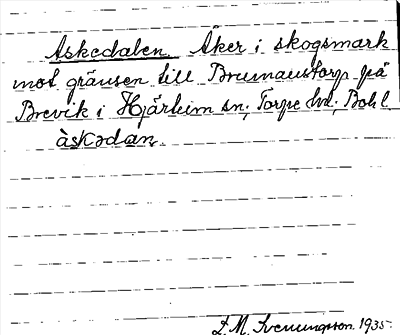 Askedalen. Åker i skogsmark
mot gränsen till Brumaustorp på
Brevik i Hjärtum sn; Torpe hd; Bohl.
àskədàn.
D. M. Svenningson. 1935.